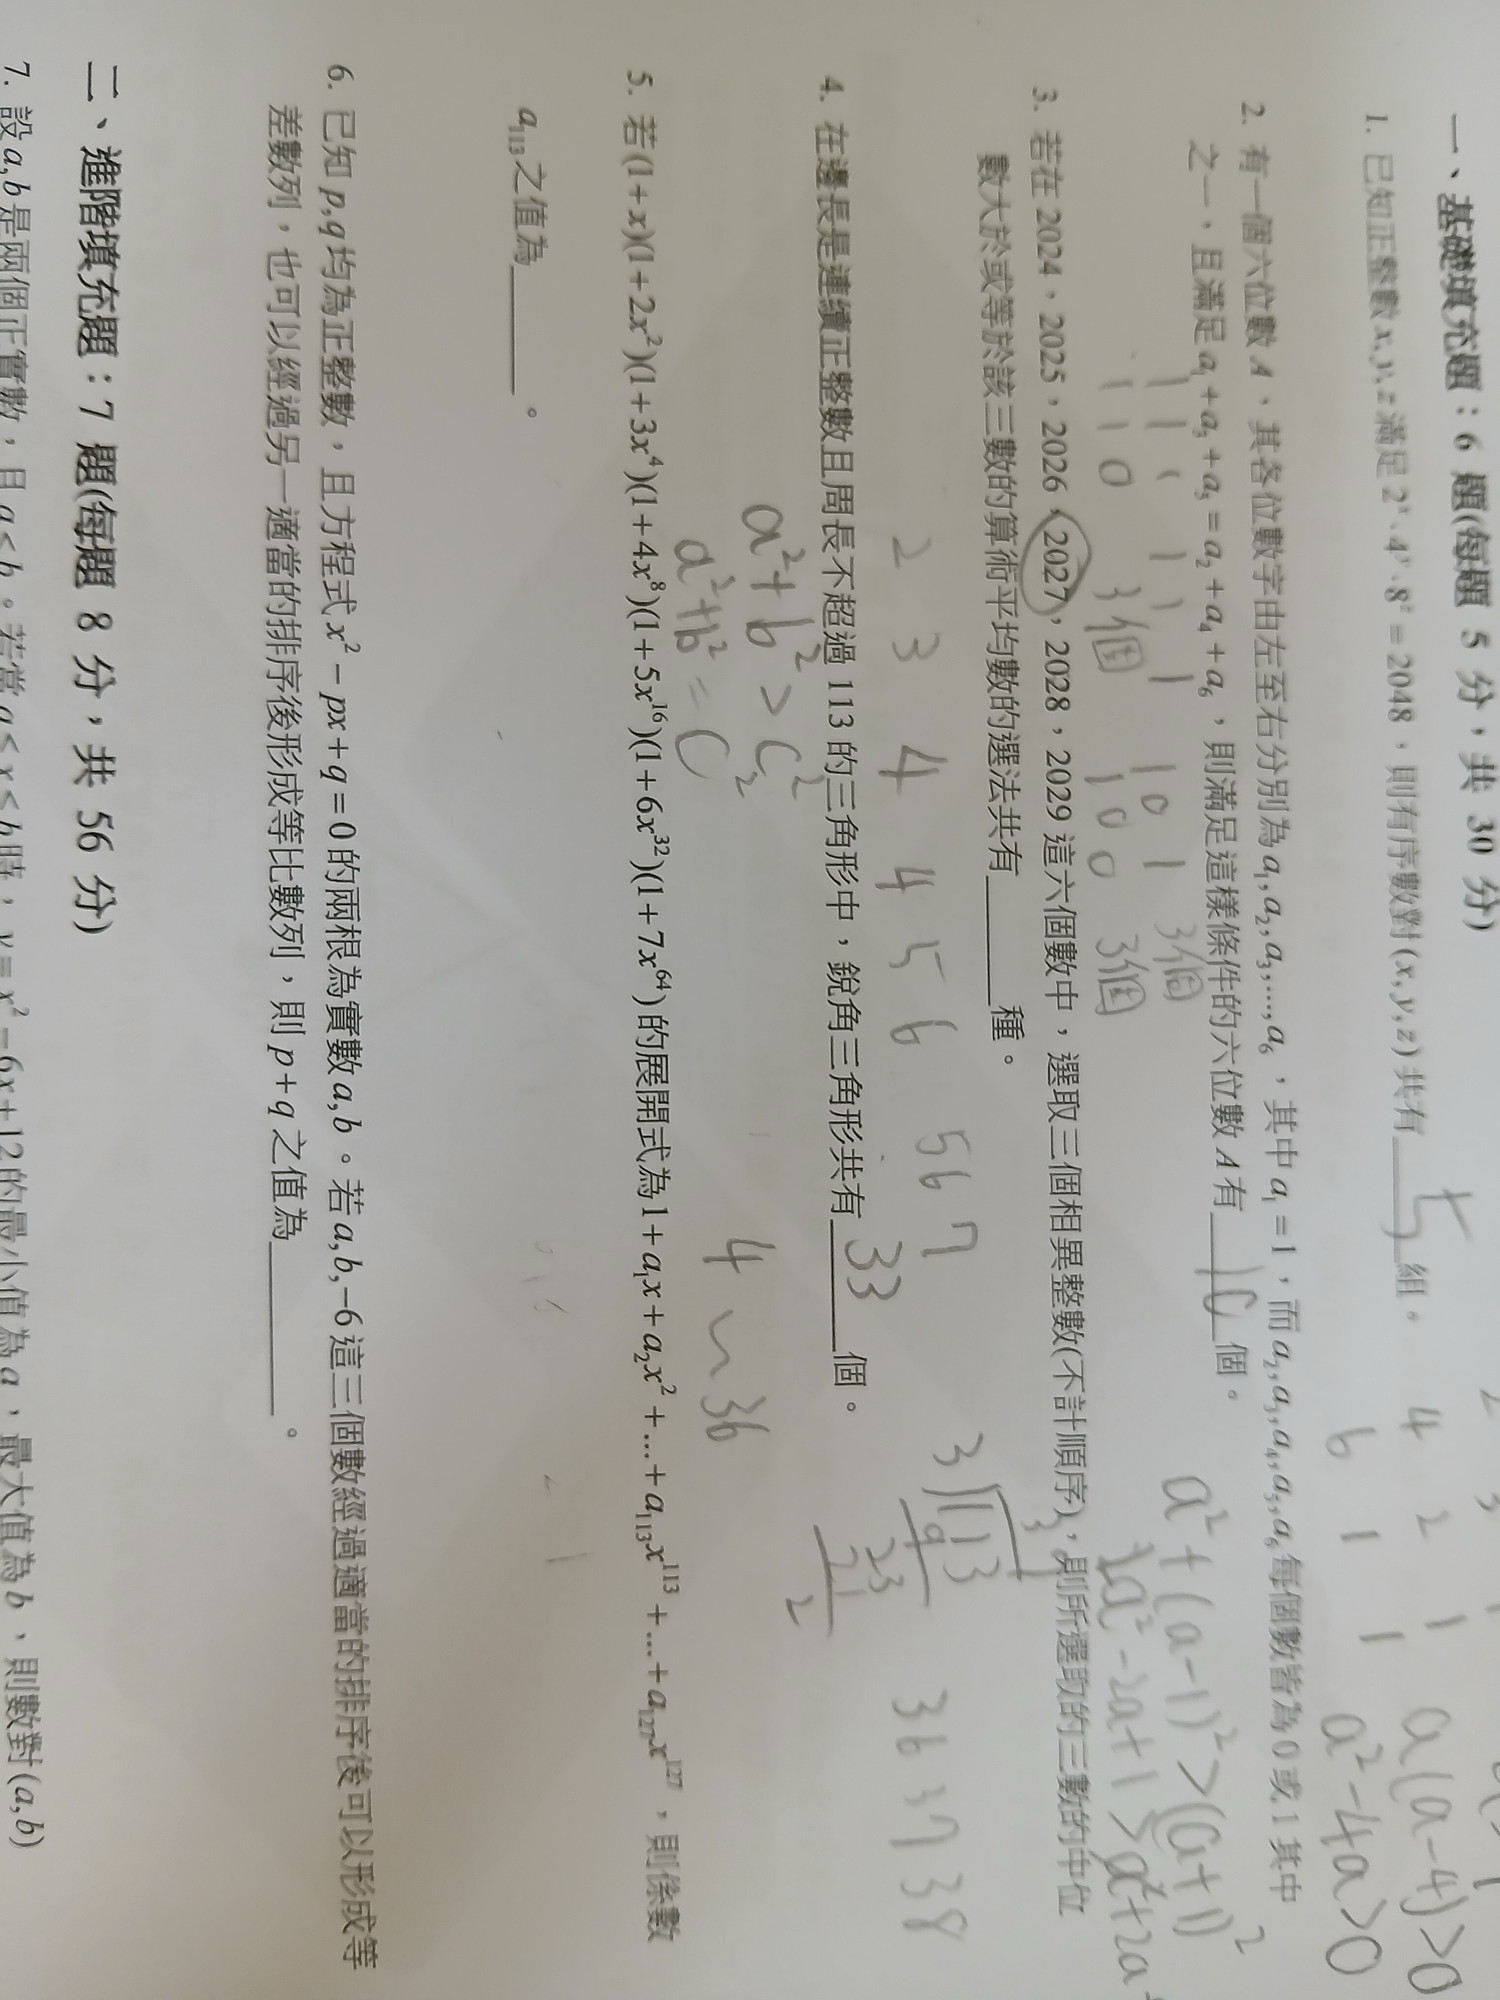 一、基礎填充題：6 題(每題 5 分，共 30 分)
1. 已知正整數 x, y, z 滿足 2^x · 4^y · 8^z = 2048，則有序數對 (x, y, z) 共有 5 組。
4 2 1
6 1 1
a(a-4)>0
a²-4a>0
2. 有一個六位數 A，其各位數字由左至右分別為 a₁, a₂, a₃, ..., a₆，其中 a₁ = 1，而 a₂, a₃, a₄, a₅, a₆ 每個數皆為 0 或 1 其中
之一、且滿足 a₁ + a₃ + a₅ = a₂ + a₄ + a₆，則滿足這樣條件的六位數 A 有 10 個。
1 1 1 1 1 1 1 0 1 3個
1 1 0 3個 1 0 0 3個
a²+(a-1)²>(a+1)²
2a²-2a+1>a²+2a+
3. 若在 2024，2025，2026，2027，2028，2029 這六個數中，選取三個相異整數(不計順序)，則所選取的三數的中位
數大於或等於該三數的算術平均數的選法共有 種。
2 3 4 4 5 6 5 6 7
3 113
9
23
21
2
36 37 38
4. 在邊長是連續正整數且周長不超過 113 的三角形中，銳角三角形共有 33 個。
a²+b²>c²
a²+b²=c²
4~36
5. 若 (1+x)(1+2x²)(1+3x⁴)(1+4x⁸)(1+5x¹⁶)(1+6x³²)(1+7x⁶⁴) 的展開式為 1 + a₁x + a₂x² + ... + a₁₁₃x¹¹³ + ... + a₁₂₇x¹²⁷，則係數
a₁₁₃ 之值為 。
6. 已知 p, q 均為正整數，且方程式 x² − px + q = 0 的兩根為實數 a, b。若 a, b, −6 這三個數經過適當的排序後可以形成等
差數列，也可以經過另一適當的排序後形成等比數列，則 p + q 之值為 。
二、進階填充題：7 題(每題 8 分，共 56 分)
7. 設 a, b 是兩個正實數，且 a < b。若當 a ≤ x ≤ b 時，y = x² − 6x + 12 的最小值為 a，最大值為 b，則數對 (a, b)